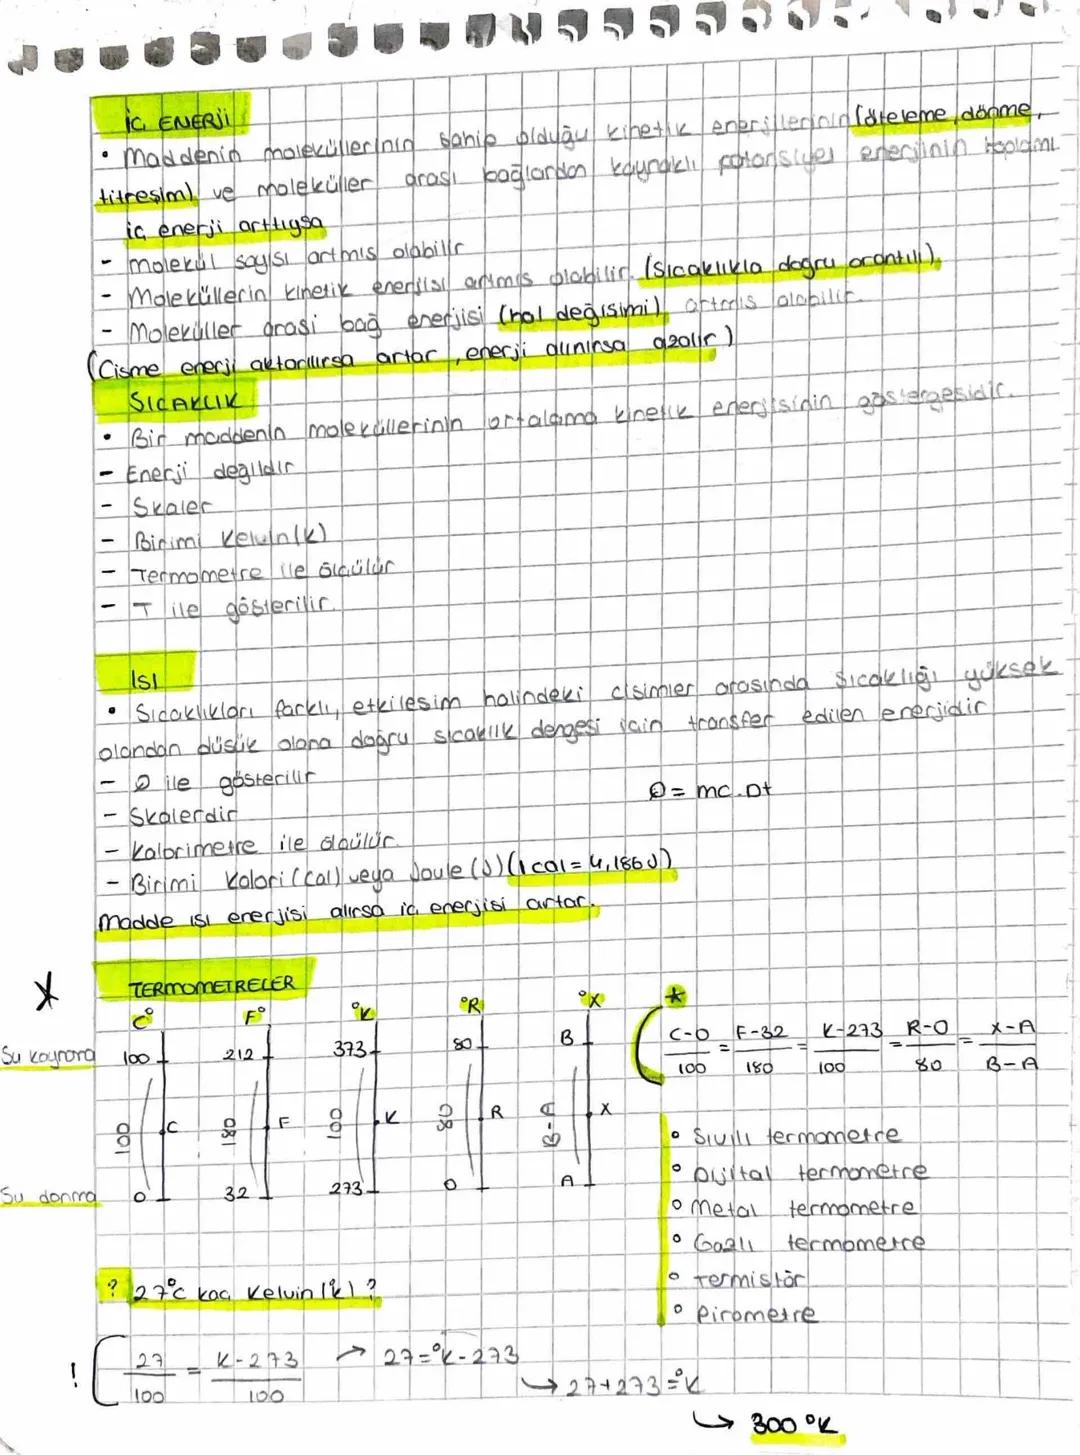 İÇ ENERJİ
• Maddenin moleküllerinin sahip olduğu kinetik enerjilerinin (öteleme, dönme,
titreşim) ve moleküller arası bağlardan kaynaklı potansiyel enerjinin toplamı
iç enerji arttıysa
- Molekül sayısı artmış olabilir
- Moleküllerin kinetik enerjisi artmış olabilir. (Sıcaklıkla doğru orantılı)
- Moleküller arası bağ enerjisi (hal değişimi) artmış olabilir.
(Cisme enerji aktarılırsa artar, enerji alınırsa azalır)
SICAKLIK
• Bir maddenin moleküllerinin ortalama kinetik enerjisinin göstergesidir.
- Enerji değildir
- Skaler
- Birimi Kelvin(k)
- Termometre ile ölçülür
- T ile gösterilir.
ISI
• Sıcaklıkları farklı, etkileşim halindeki cisimler arasında sıcaklığı yüksek
olandan düşük olana doğru sıcaklık dengesi için transfer edilen enerjidir
- Q ile gösterilir
Q = mc.Dt
- Skalerdir
- Kalorimetre ile ölçülür.
- Birimi Kalori (cal) veya Joule (J) (1 cal = 4,186J)
Madde ısı enerjisi alırsa iç enerjisi artar.
TERMOMETRELER
C° F° °K °R °X
Su kaynama 100 212 373 80 B
100 C 180 F 100 K 80 R B-A X
Su donma 0 32 273 0 A
C-0/100 = F-32/180 = K-273/100 = R-0/80 = X-A/B-A
• Sıvılı termometre
• Dijital termometre
• Metal termometre
• Gazlı termometre
• Termistör
• Pirometre
? 27°C kaç Kelvin (°k) ?
! 27/100 = K-273/100 → 27=°K-273
→ 27+273=°K
→ 300 °K